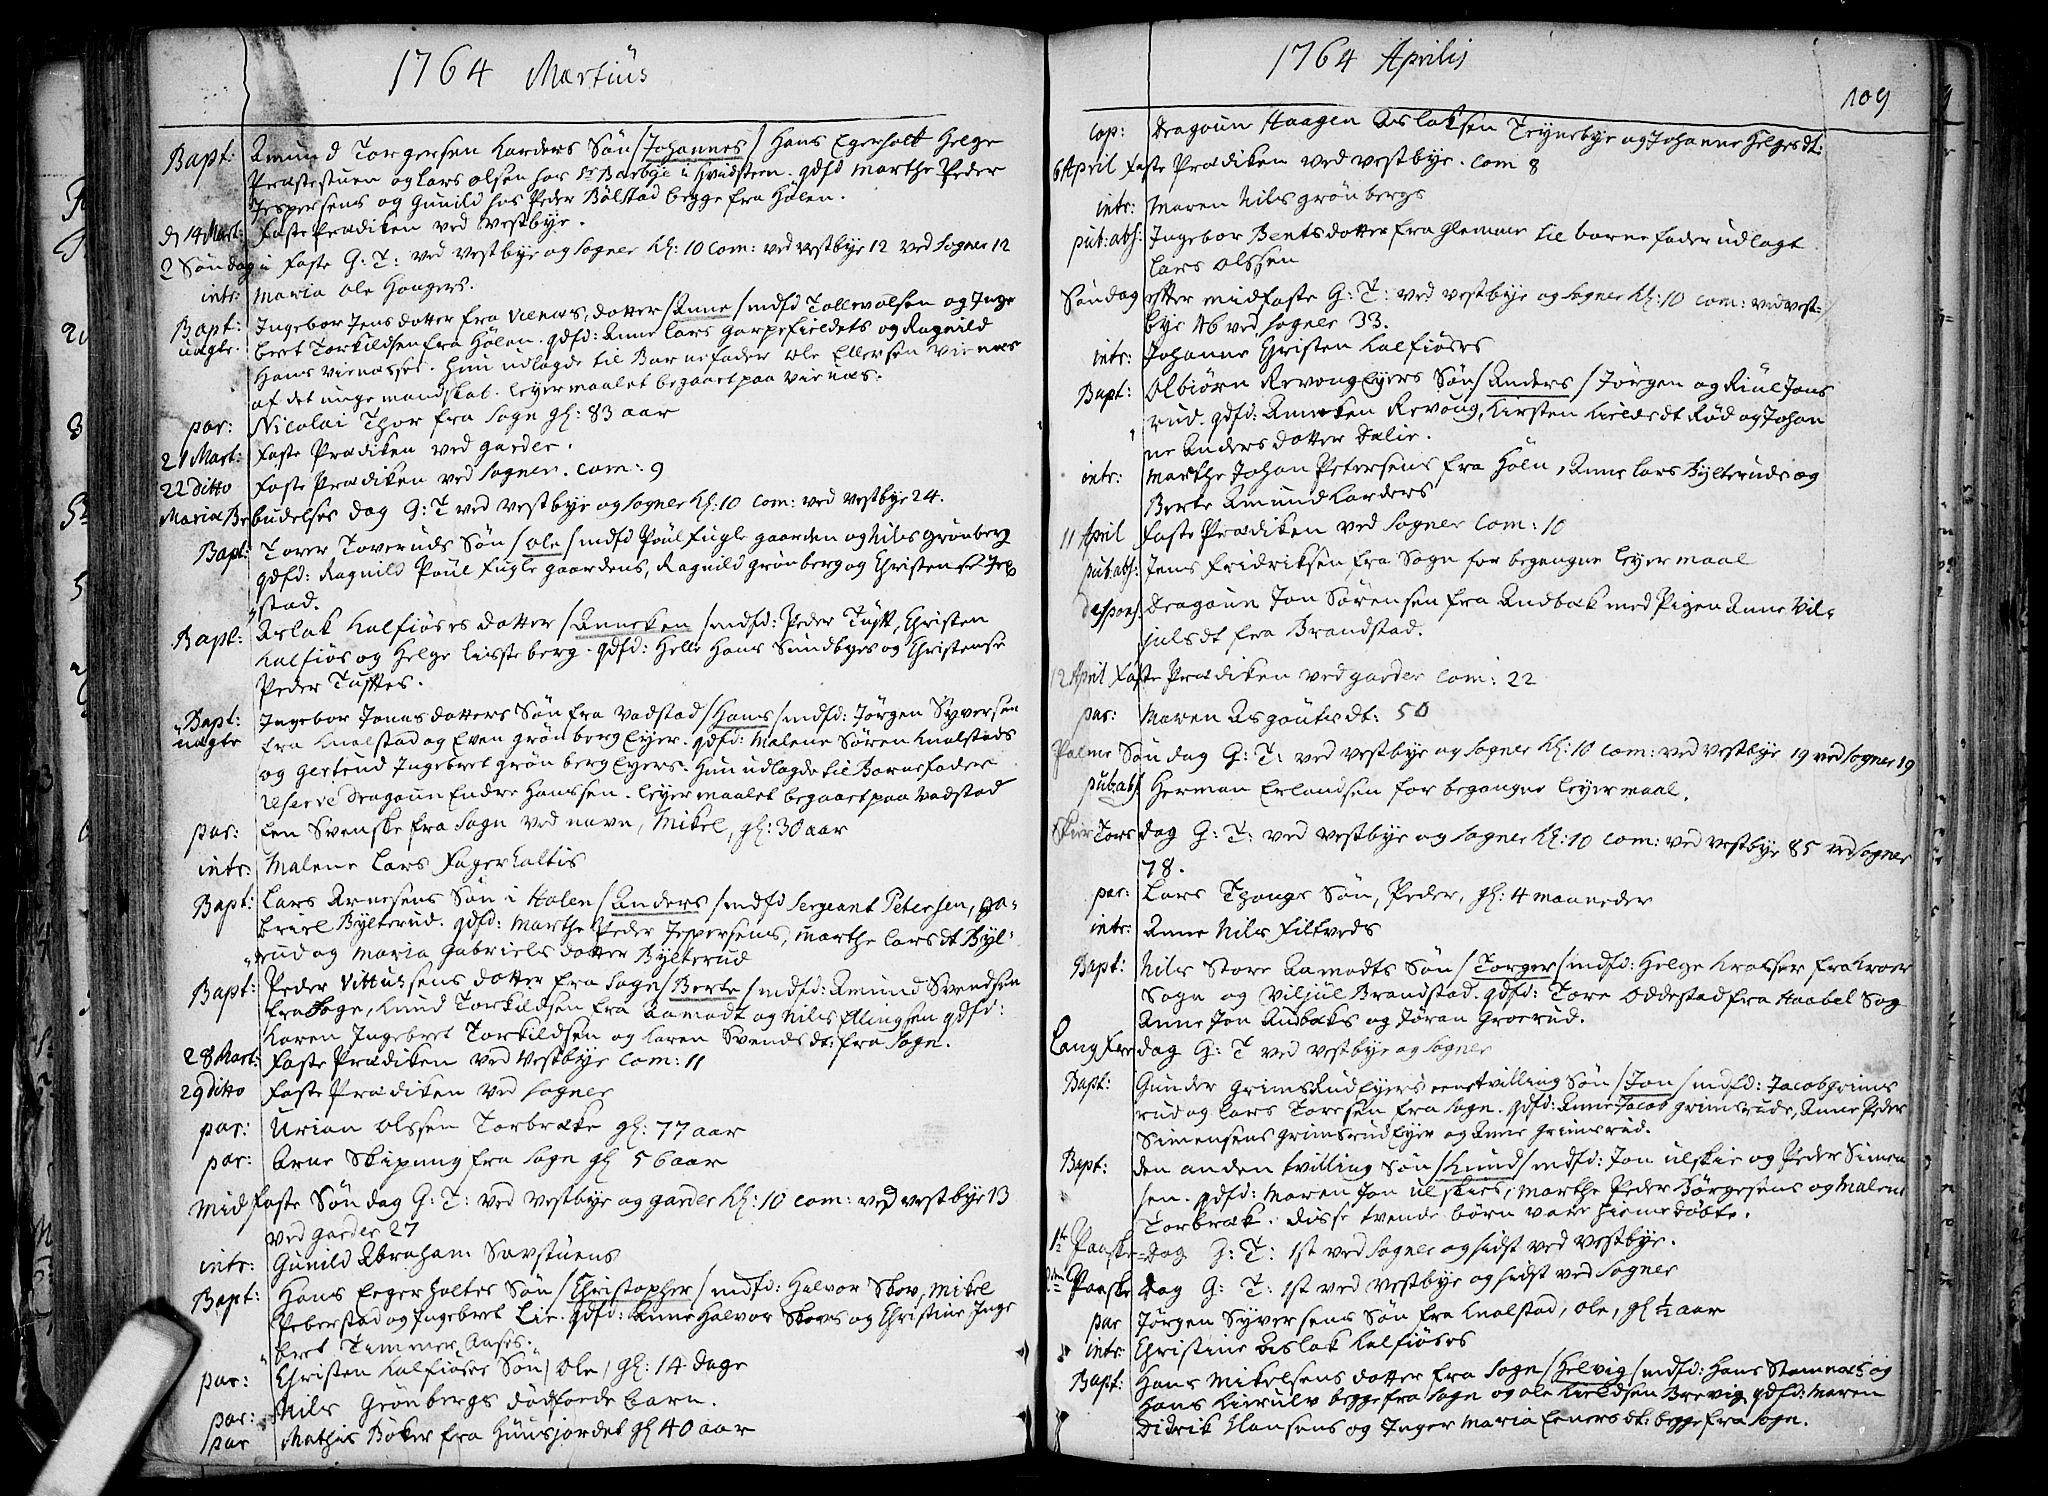 1764 Martius
Bapt: Amund Torgersen Karders Søn / Johannes / Hans Egerholt Helge
Præstestuen og Lars Olsen hos Sr Barbye i Hvidsteen. gdfd Marthe Peder
Jespersens og Gunild hos Peder Bølstad begge fra Hølen.
d 14 Mart: Faste Prædiken ved Vestbye.
2 Søndag i Faste G: T: ved Vestbye og Sogner Kl: 10 Com: ved Vestbye 12 ved Sogner 12
intr: Maria Ole Haagers.
Bapt: Ingebor Jens dotter fra Viernæs, dotter / Anne / mdfd Tollev Olsen og Inge
uægte. bret Torkildsen fra Hølen. gdfd: Anne Lars Garpefieldets og Ragnild
Hans Viernæsses. Hun udlagde til Barnefader Ole Ellersen Viernæs
af det unge mandskab. Leyermaalet begaaet paa Viernæs.
par: Nicolai Thor fra Sogn gl: 83 aar
21 Mart: Faste Prædiken ved Garder.
22 Ditto Faste Prædiken ved Sogner. Com: 9
Mariæ Bebudelses dag G: T ved Vestbye og Sogner Kl: 10 Com: ved Vestbye 24.
Bapt: Torer Toveruds Søn / Ole / mdfd Poul Fuglegaarden og Nils Grønberg
gdfd: Ragnild Poul Fuglegaardens, Ragnild Grønberg og Christense Jep
stad.
Bapt: Aslak Kalfiøses dotter / Anneken / mdfd: Peder Tuft, Christen
Kalfiøs og Helge Lisseberg. gdfd: Helle Hans Sundbyes og Christense
Peder Tuftes.
Bapt: Ingebor Jonas dotters Søn fra Vadstad / Hans / mdfd: Jørgen Syversen
uægte fra Knalstad og Even Grønberg Eyer. gdfd: Malene Søren Knalstads
og Gertrud Ingebret Grønberg Eyers. Hun udlagde til Barnefader
reserve dragoun Endre Hanssen. Leyermaalet begaaet paa Vadstad
par: En Svenske fra Sogn ved navn, Mikel, gl: 30 aar
intr: Malene Lars Fagerholtis
Bapt: Lars Arnesens Søn i Hølen / Anders / mdfd Sergeant Petersen, Ga-
briel Bylterud. gdfd: Marthe Peder Jespersens, Marthe Lars dt Byl-
rud og Maria Gabriels dotter Bylterud
Bapt: Peder Vittussens dotter fra Sogn / Berte / mdfd: Amund Svendsen
fra Sogn, Knud Torkildsen fra Aamodt og Nils Ellingsen gdfd:
Karen Ingebret Torkildsen og Karen Svends dt: fra Sogn.
28 Mart: Faste Prædiken ved Vestbye Com: 11
29 Ditto Faste Prædiken ved Sogner
par: Urian Olssen Torbrække gl: 77 aar
par: Arne Skipung fra Sogn gl 56 aar
Midfaste Søndag G: T: ved Vestbye og Garder Kl: 10 Com: ved Vestbye 13
ved Garder 27
intr: Gunild Abraham Savstuens
Bapt: Hans Eegerholtes Søn / Christopher / mdfd: Halvor Skov, Mikel
Peberstad og Ingebret Lie. gdfd: Anne Halvor Skovs og Christine Inge
bret Timmer Aases.
par: Christen Kalfiøses Søn / Ole / gl: 14 dage
par: Nils Grønbergs dødføede barn.
par Mathis Bøker fra Huusjordet gl 40 aar
1764 Aprilis
109
Cop: Dragoun Haagen Aslaksen Teynebye og Johanne Helges dt:
6 April Faste Prædiken ved Vestbye. Com 8
intr: Maren Nils Grønbergs
pub: abs: Ingebor Bents dotter fra Glemme til barnefader udlagt
Lars Olssen
Søndag efter Midfaste G: T: ved Vestbye og Sogner Kl: 10 Com: ved Vest-
bye 46 ved Sogner 33.
intr: Johanne Christen Kalfiøses
Bapt: Olbiørn Revoug Eyers Søn / Anders / Jørgen og Riul Jons
rud. gdfd: Anneken Revoug, Kirsten Kields dt Rød og Johan
ne Anders dotter Dalie.
intr: Marthe Johan Petersens fra Høln, Anne Lars Bylteruds og
Berte Amund Karders
11 April Faste Prædiken ved Sogner Com: 10
pub: abs: Jens Fridriksen fra Sogn for begangne Leyermaal
desponf: Dragoun Jon Sørensen fra Audbæk med Pigen Anne Vil-
juls dt fra Brandstad.
12 April Faste Prædiken ved Garder Com: 22
par: Maren Asgouts dt: 50
Palme Søndag G: T: ved Vestbye og Sogner Kl: 10 Com: ved Vestbye 19 ved Sogner 19
pub: abs Herman Erlandsen for begangne Leyermaal.
Skier Torsdag G: T: ved Vestbye og Sogner Kl: 10 Com: ved Vestbye 85 ved Sogner
78.
par: Lars Thonge Søn, Peder, gl: 4 maaneder
intr: Anne Nils Filtveds
Bapt: Nils Store Aamodts Søn / Torger / mdfd: Helge Krosser fra Kroer
Sogn og Viljul Brandstad. gdfd: Tore Oddestad fra Haabel Sog
Anne Jon Audbæks og Jøran Groerud.
Lang Fredag G: T ved Vestbye og Sogner
Bapt: Gunder Grimsrud Eyers eene tvilling Søn / Jon / mdfd: Jacob Grims
rud og Lars Toresen fra Sogn. gdfd: Anne Jacob Grimsruds, Anne Peder
Simensens Grimsrud Eyer og Anne Grimsrud.
Bapt: den anden tvilling Søn / Knud / mdfd: Jon Ulskie og Peder Simen
sen. gdfd: Maren Jon Ulskies, Marthe Peder Børgesens og Malene
Torbræk. disse tvende børn vare hiemmedøbte.
1te Paaske-Dag G: T: 1st ved Sogner og sidst ved Vestbye.
2den Paaske Dag G: T: 1st ved Vestbye og sidst ved Sogner
par Jørgen Syversens Søn fra Knalstad, Ole, gl ½ aar
intr Christine Aslak Kalfiøses
Bapt: Hans Mikelsens dotter fra Sogn / Helvig / mdfd: Hans Stamnæs og
Hans Kierulv begge fra Sogn og Ole Kieldsen Brevig gdfd: Maren
Didrik Hansens og Inger Maria Eeners dt: begge fra Sogn.